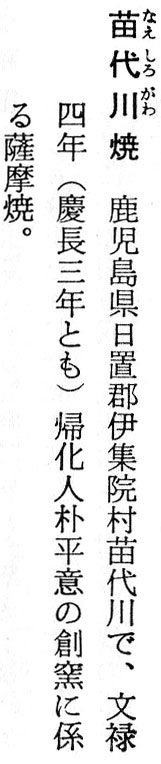 苗代川焼　鹿児島県日置郡伊集院村苗代川で、文禄
四年（慶長三年とも）帰化人朴平意の創窯に係
る薩摩焼。